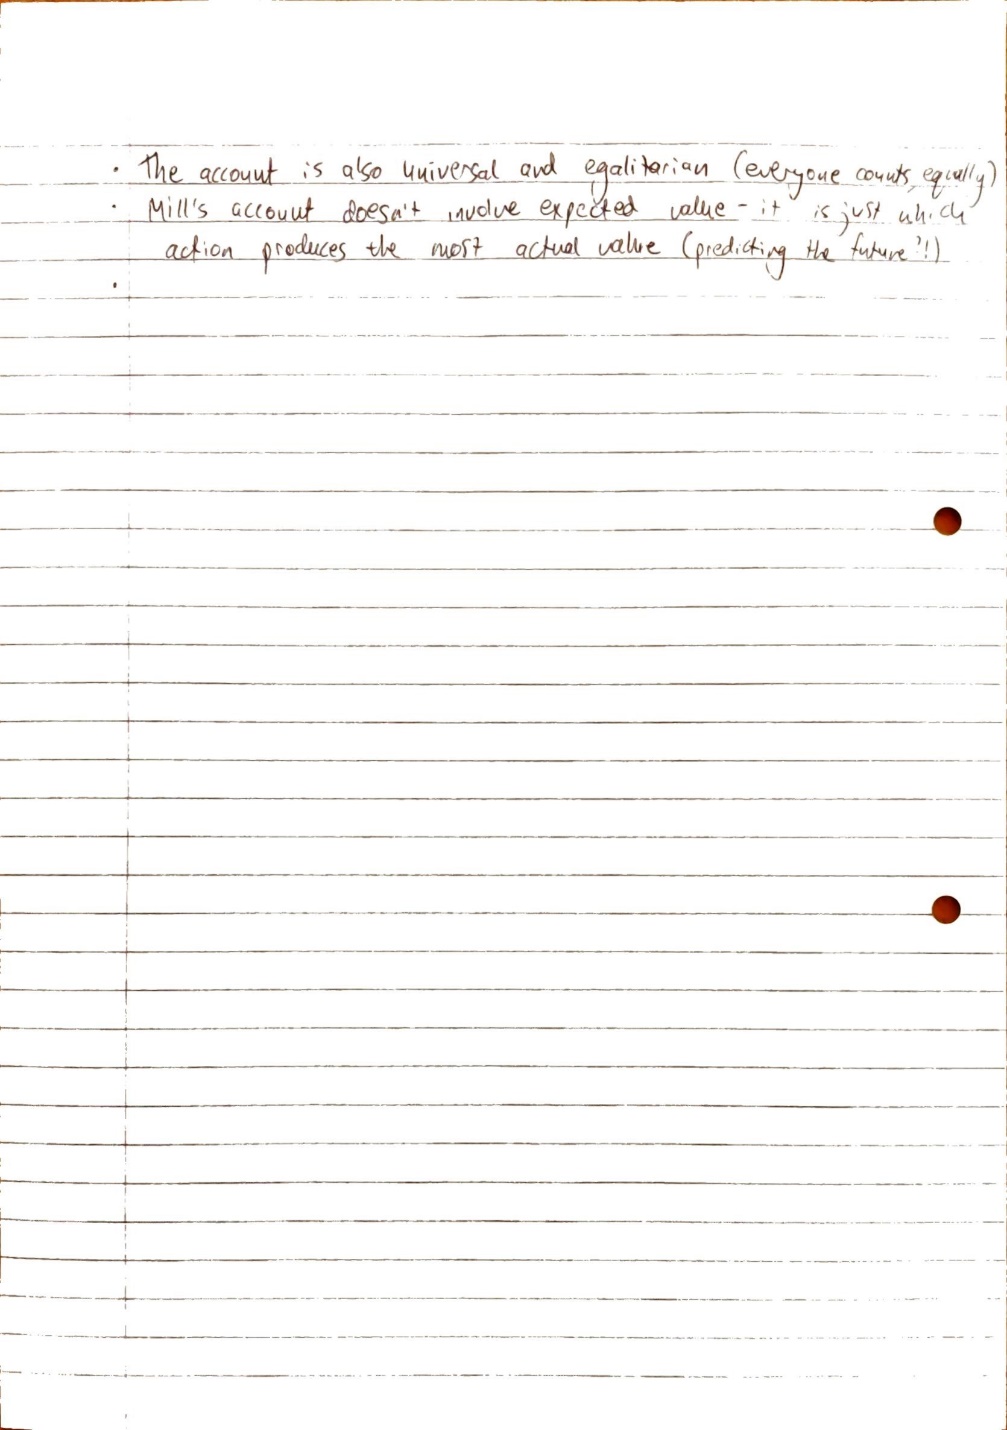 · The account is also universal and egalitarian (everyone counts equally)
· Mill's account doesn't involve expected value - it is just which
action produces the most actual value (predicting the future?!)
·